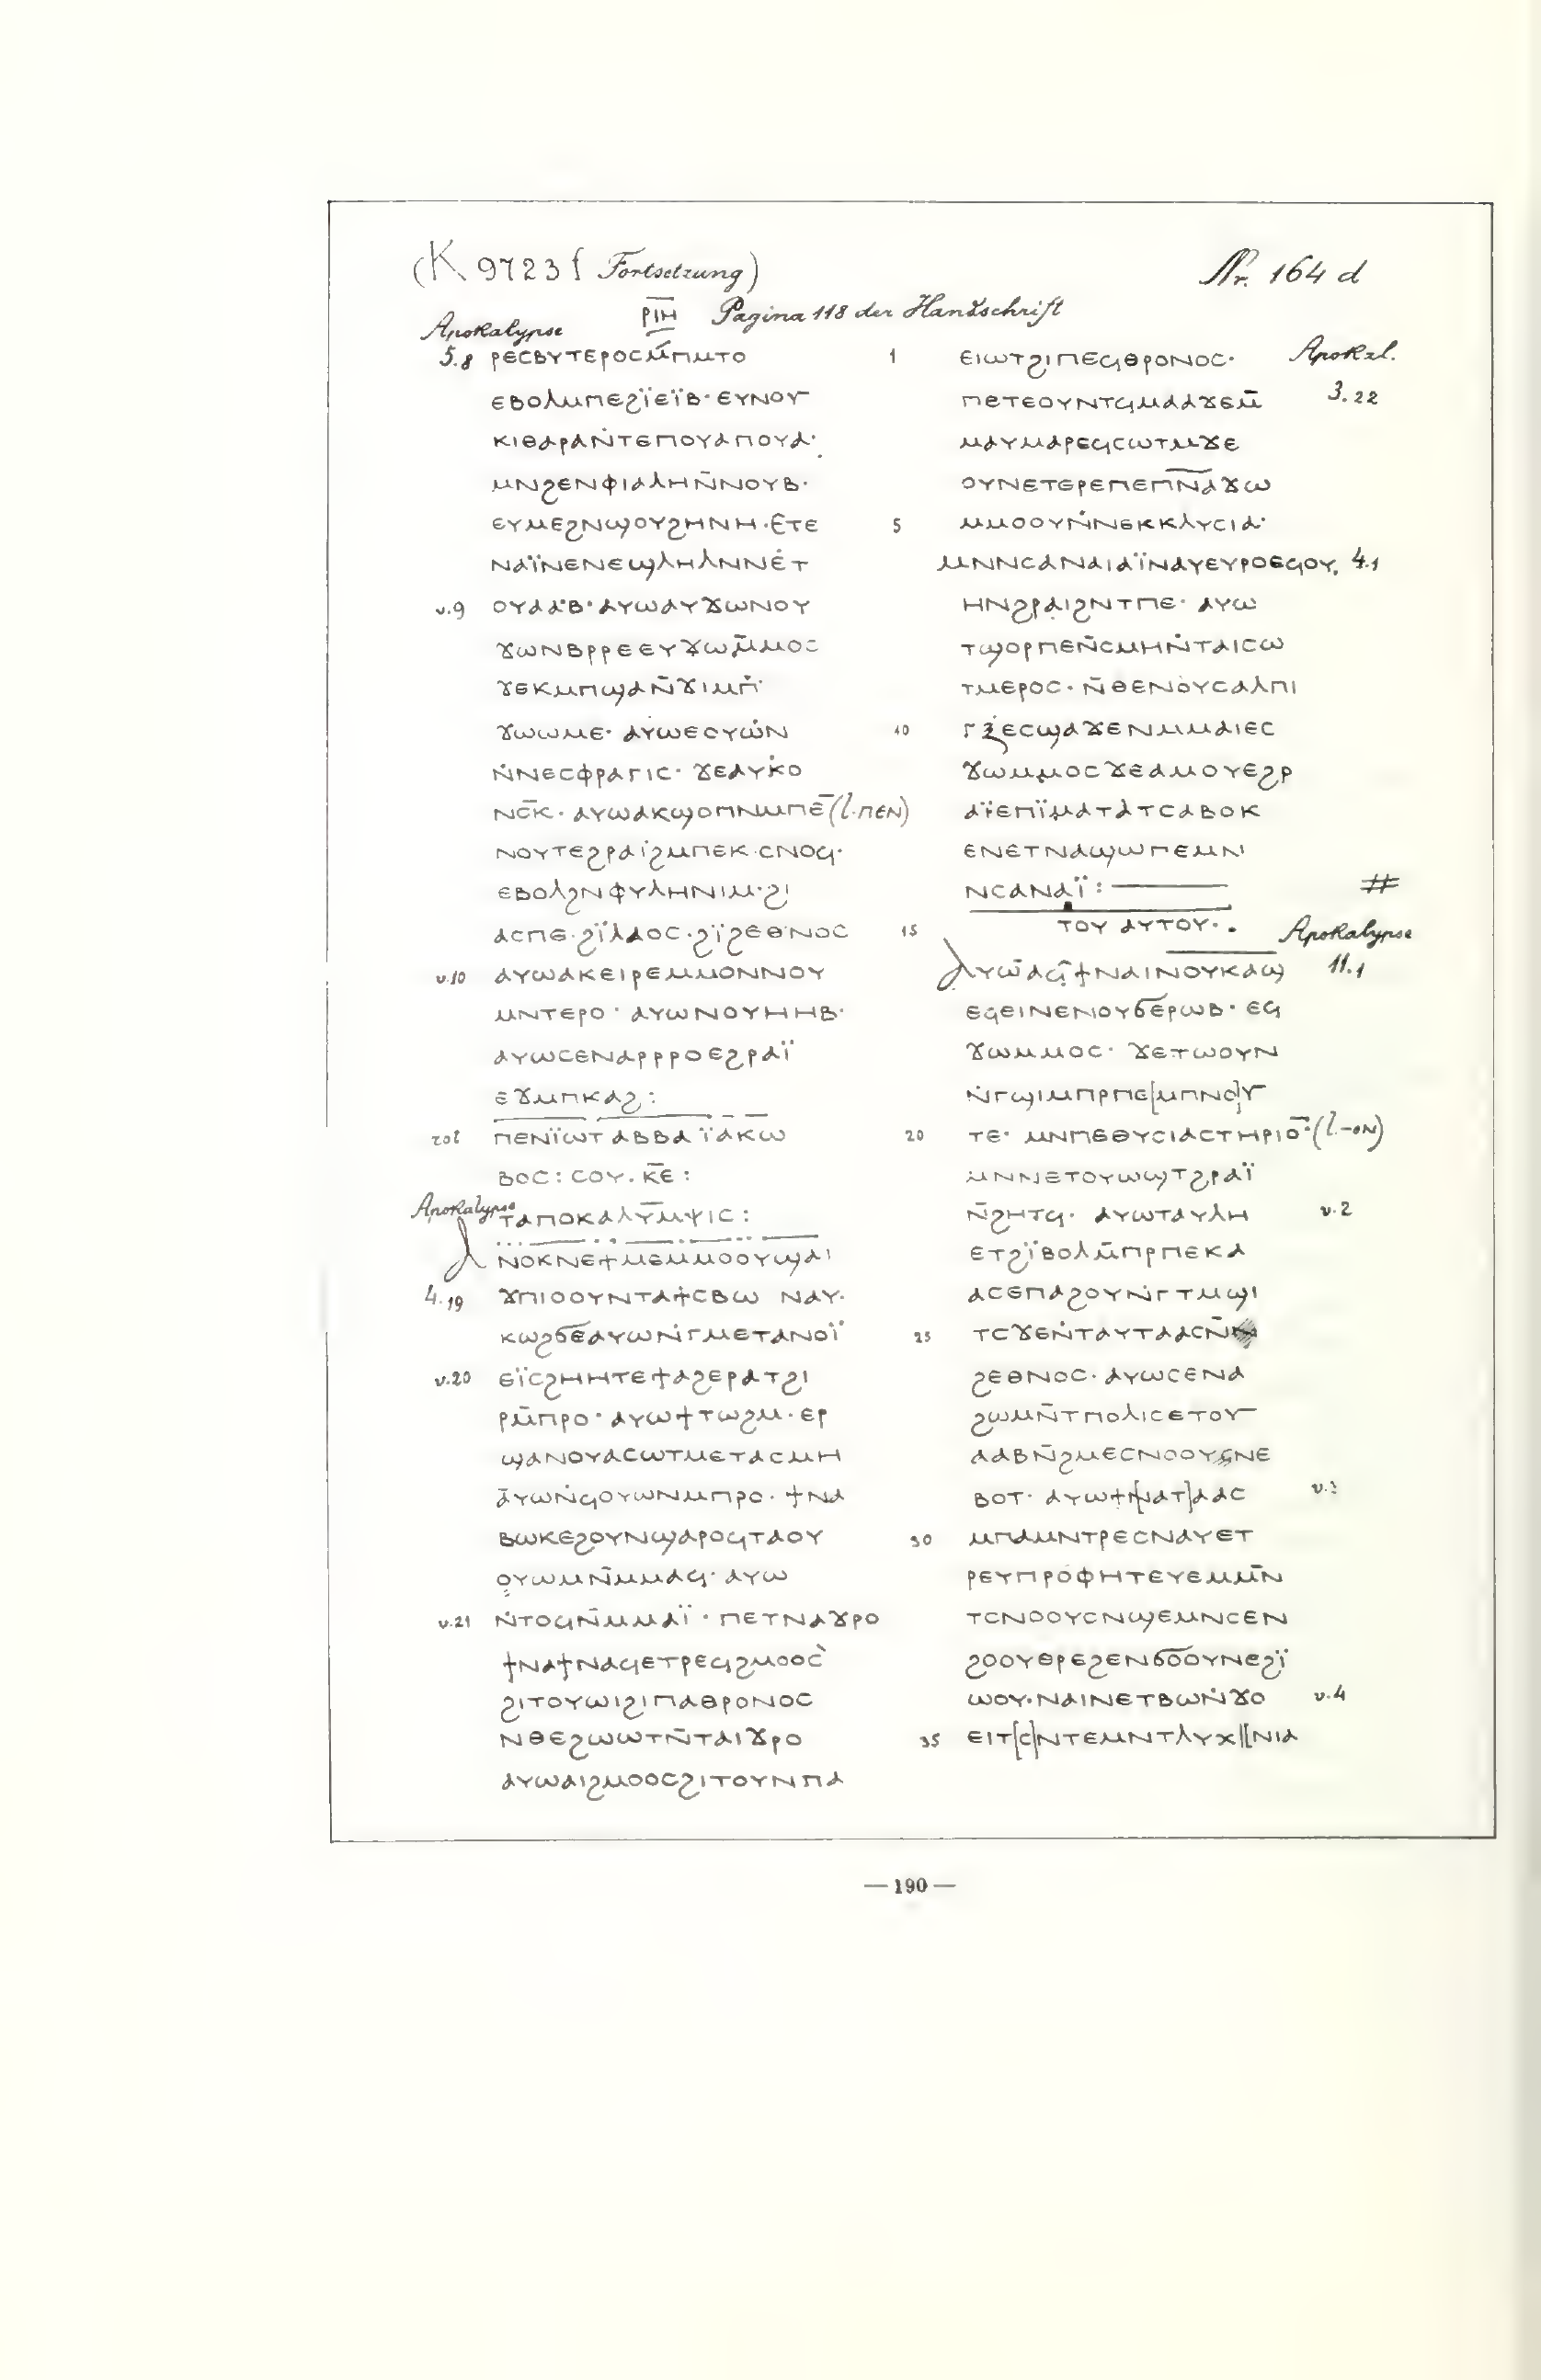 (K 9723 f Fortsetzung) Nr. 164 d
ⲣⲓⲏ Pagina 118 der Handschrift
Apokalypse
5.8 ⲣⲉⲥⲃⲩⲧⲉⲣⲟⲥⲙ̄ⲡⲙⲧⲟ
ⲉⲃⲟⲗⲙⲡⲉϩⲓ̈ⲉⲓ̈ⲃ· ⲉⲩⲛⲟⲩ
ⲕⲓⲑⲁⲣⲁⲛ̇ⲧⲉⲡⲟⲩⲁⲡⲟⲩⲁ·
ⲙⲛϩⲉⲛⲫⲓⲁⲗⲏⲛ̄ⲛⲟⲩⲃ·
ⲉⲩⲙⲉϩⲛϣⲟⲩϩⲏⲛⲏ·ⲉⲧⲉ
ⲛⲁⲓ̈ⲛⲉⲛⲉϣⲗⲏⲗⲛⲛⲉ̇ⲧ
v.9 ⲟⲩⲁⲁⲃ· ⲁⲩⲱⲁⲩϫⲱⲛⲟⲩ
ϫⲱⲛⲃⲣⲣⲉⲉⲩϫⲱⲙ̄ⲙⲟⲥ
ϫⲉⲕⲙⲡϣⲁⲛ̄ϫⲓⲙⲡ̇
ϫⲱⲱⲙⲉ· ⲁⲩⲱⲉⲟⲩⲱ̇ⲛ
ⲛ̇ⲛⲉⲥⲫⲣⲁⲅⲓⲥ· ϫⲉⲁⲩⲕ̇ⲟ
ⲛⲥ̄ⲕ· ⲁⲩⲱⲁⲕϣⲟⲡⲛⲙⲡⲉ̄ (l. ⲡⲉⲛ)
ⲛⲟⲩⲧⲉϩⲣⲁⲓ̈ϩⲙⲡⲉⲕ·ⲥⲛⲟϥ·
ⲉⲃⲟⲗϩⲛⲫⲩⲗⲏⲛⲓⲙ·ϩⲓ
ⲁⲥⲡⲉ·ϩⲓ̈ⲗⲁⲟⲥ·ϩⲓ̈ϩⲉⲑⲛⲟⲥ
v.10 ⲁⲩⲱⲁⲕⲉⲓⲣⲉⲙⲙⲟⲛⲛⲟⲩ
ⲙⲛⲧⲉⲣⲟ· ⲁⲩⲱⲛⲟⲩⲏⲏⲃ·
ⲁⲩⲱⲥⲉⲛⲁⲣⲣⲣⲟⲉϩⲣⲁⲓ̈
ⲉϫⲙⲡⲕⲁϩ:
rot ⲡⲉⲛⲓ̈ⲱⲧ ⲁⲃⲃⲁ ⲓ̈ⲁⲕⲱ
ⲃⲟⲥ: ⲥⲟⲩ. ⲕ̄ⲉ̄:
Apokalypse ⲧⲁⲡⲟⲕⲁⲗⲩ̄ⲙⲯⲓⲥ:
ⲁⲛⲟⲕⲛⲉϯⲙⲉⲙⲙⲟⲟⲩϣⲁⲓ
4.19 ϫⲡⲓⲟⲟⲩⲛⲧⲁϯⲥⲃⲱ ⲛⲁⲩ·
ⲕⲱϩϭⲉⲁⲩⲱⲛ̇ⲅⲙⲉⲧⲁⲛⲟⲓ̈
v.20 ⲉⲓ̈ⲥϩⲏⲏⲧⲉϯⲁϩⲉⲣⲁⲧϩⲓ
ⲣⲙ̄ⲡⲣⲟ· ⲁⲩⲱϯⲧⲱϩⲙ·ⲉⲣ
ϣⲁⲛⲟⲩⲁⲥⲱⲧⲙⲉⲧⲁⲥⲙⲏ
ⲁ̄ⲩⲱⲛ̇ϥⲟⲩⲱⲛⲙⲡⲣⲟ· ϯⲛⲁ
ⲃⲱⲕⲉϩⲟⲩⲛϣⲁⲣⲟϥⲧⲁⲟⲩ
ⲟⲩⲱⲙⲛ̄ⲙⲙⲁϥ· ⲁⲩⲱ
v.21 ⲛ̇ⲧⲟϥⲛ̄ⲙⲙⲁⲓ̈· ⲡⲉⲧⲛⲁϫⲣⲟ
ϯⲛⲁϯⲛⲁϥⲉⲧⲣⲉϥϩⲙⲟⲟⲥ̀
ϩⲓⲧⲟⲩⲱⲓϩⲓⲡⲁⲑⲣⲟⲛⲟⲥ
ⲛⲑⲉϩⲱⲱⲧⲛ̄ⲧⲁⲓϫⲣⲟ
ⲁⲩⲱⲁⲓϩⲙⲟⲟⲥϩⲓⲧⲟⲩⲛⲡⲁ
1 ⲉⲓⲱⲧϩⲓⲡⲉϥⲑⲣⲟⲛⲟⲥ· Apokal.
ⲡⲉⲧⲉⲟⲩⲛⲧϥⲙⲁⲁϫⲉⲙ̄ 3.22
ⲙⲁⲩⲙⲁⲣⲉϥⲥⲱⲧⲙϫⲉ
ⲟⲩⲛⲉⲧⲉⲣⲉⲡⲉⲡ̄ⲛ̄ⲁ̄ϫⲱ
5 ⲙⲙⲟⲟⲩⲛ̇ⲛⲉⲕⲕⲗⲩⲥⲓⲁ·
ⲙⲛⲛⲥⲁⲛⲁⲓⲁⲓ̈ⲛⲁⲩⲉⲩⲣⲟⲉϥⲟⲩ. 4.1
ⲏⲛϩⲣⲁⲓϩⲛⲧⲡⲉ· ⲁⲩⲱ
ⲧϣⲟⲣⲡⲉⲛ̄ⲥⲙⲏⲛ̇ⲧⲁⲓⲥⲱ
ⲧⲙⲉⲣⲟⲥ· ⲛ̄ⲑⲉⲛⲟⲩⲥⲁⲗⲡⲓ
10 ⲅⲝⲉⲥϣⲁϫⲉⲛⲙⲙⲁⲓⲉⲥ
ϫⲱⲙⲙⲟⲥϫⲉⲁⲙⲟⲩⲉϩⲣ
ⲁⲓ̈ⲉⲡⲓ̈ⲙⲁⲧⲁⲧⲥⲁⲃⲟⲕ
ⲉⲛⲉⲧⲛⲁϣⲱⲡⲉⲙⲛ
ⲛⲥⲁⲛⲁⲓ̈: #
15 ⲧⲟⲩ ⲁⲩⲧⲟⲩ·. Apokalypse
ⲁⲩⲱ̄ⲁϥ̄ϯⲛⲁⲓⲛⲟⲩⲕⲁϣ 11.1
ⲉϥⲉⲓⲛⲉⲛⲟⲩϭⲉⲣⲱⲃ· ⲉϥ
ϫⲱⲙⲙⲟⲥ· ϫⲉⲧⲱⲟⲩⲛ
ⲛ̇ⲅϣⲓⲙⲡⲣⲡⲉ[ⲙⲡⲛⲟ]ⲩ
20 ⲧⲉ· ⲙⲛⲡⲉⲑⲩⲥⲓⲁⲥⲧⲏⲣⲓⲟ̄· (l. -ⲟⲛ)
ⲙⲛⲛⲉⲧⲟⲩⲱϣⲧϩⲣⲁⲓ̈
ⲛ̄ϩⲏⲧϥ· ⲁⲩⲱⲧⲁⲩⲗⲏ v.2
ⲉⲧϩⲓ̈ⲃⲟⲗⲙ̄ⲡⲣⲡⲉⲕⲁ
ⲁⲥⲉⲡⲁϩⲟⲩⲛ̇ⲅⲧⲙϣⲓ
25 ⲧⲥϫⲉⲛ̇ⲧⲁⲩⲧⲁⲁⲥⲛ̄
ϩⲉⲑⲛⲟⲥ· ⲁⲩⲱⲥⲉⲛⲁ
ϩⲱⲙⲛ̄ⲧⲡⲟⲗⲓⲥⲉⲧⲟⲩ
ⲁⲁⲃⲛ̄ϩⲙⲉⲥⲛⲟⲟⲩⲥⲛⲉ
ⲃⲟⲧ· ⲁⲩⲱϯ[ⲛⲁϯ]ⲁⲁⲥ v.3
30 ⲙⲡⲁⲙⲛⲧⲣⲉⲥⲛⲁⲩⲉⲧ
ⲣⲉⲩⲡⲣⲟⲫⲏⲧⲉⲩⲉⲙⲙ̄ⲛ
ⲧⲥⲛⲟⲟⲩⲥⲛϣⲉⲙⲛⲥⲉⲛ
ϩⲟⲟⲩⲑⲣⲉϩⲉⲛϭⲟⲟⲩⲛⲉϩⲓ̈
ⲱⲟⲩ·ⲛⲁⲓⲛⲉⲧⲃⲱⲛ̇ϫⲟ v.4
35 ⲉⲓⲧ[ⲥ]ⲛⲧⲉⲙⲛⲧⲗⲩⲭ][ⲛⲓⲁ
— 190 —